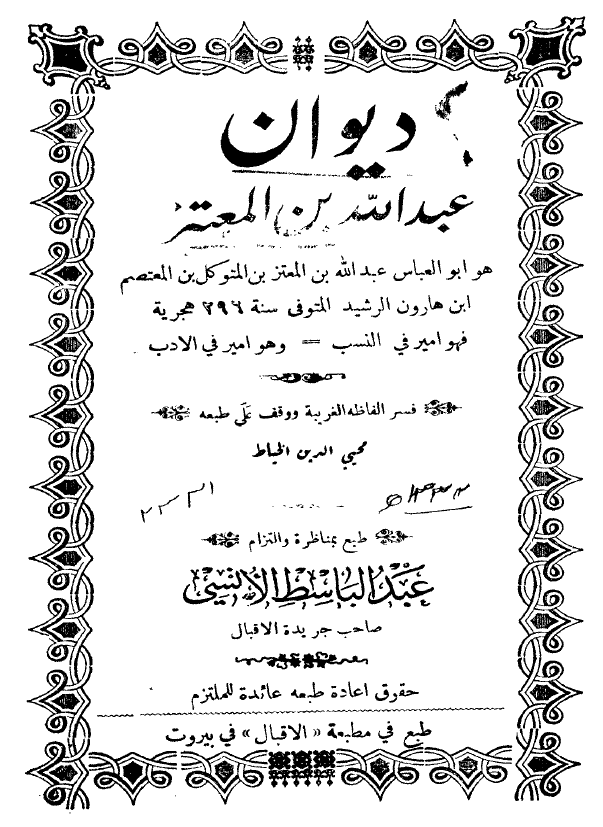 ديوان
عبد الله بن المعتز
هو ابو العباس عبد الله بن المعتز بن المتوكل بن المعتصم
ابن هارون الرشيد المتوفى سنة ٢٩٦ هجرية
فهو امير في النسب = وهو امير في الادب
فسر الفاظه الغريبة ووقف على طبعه
محيي الدين الخياط
طبع بمناظرة والتزام
عبد الباسط الأنسي
صاحب جريدة الاقبال
حقوق اعادة طبعه عائدة للملتزم
طبع في مطبعة «الاقبال» في بيروت